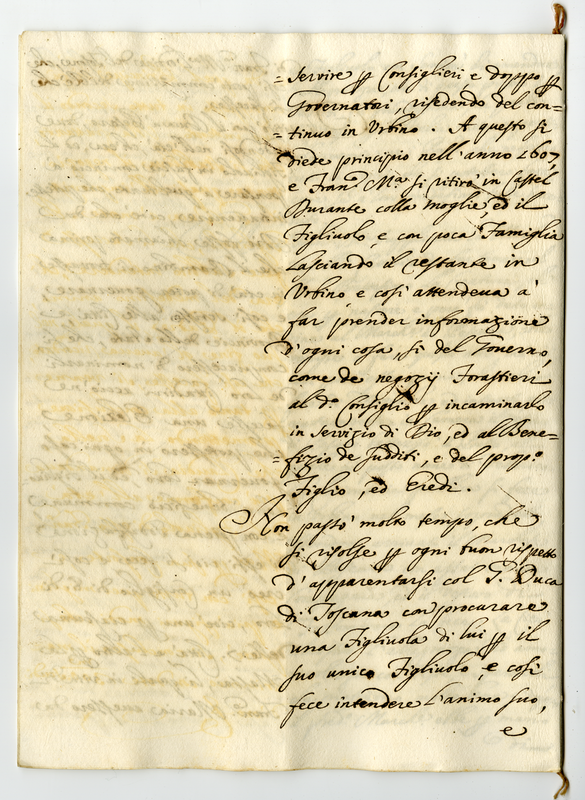 = servire ꝑ Consiglieri, e doppo ꝑ
Governatori, risedendo del con=
= tinuo in Urbino. A questo si
diede principio nell'anno 1607,
e Fran.º M.ª si ritirò in Castel
Durante colla moglie, ed il
Figliuolo, e con poca Famiglia
Lasciando il restante in
Urbino, e così attendeva à
far prender informazione
d'ogni cosa, si del Governo,
come de negozij Forastieri
al d.º Consiglio ꝑ incaminarlo
in servizio di Dio, ed al Bene=
= fizio de sudditi, e del prop.º
Figlio, ed Eredi.
Non passò molto tempo, che
si risolse ꝑ ogni buon rispetto
d'apparentarsi col G. Duca
di Toscana con procurare
una Figliuola di lui ꝑ il
suo unico Figliuolo, e così
fece intendere l'animo suo,
e